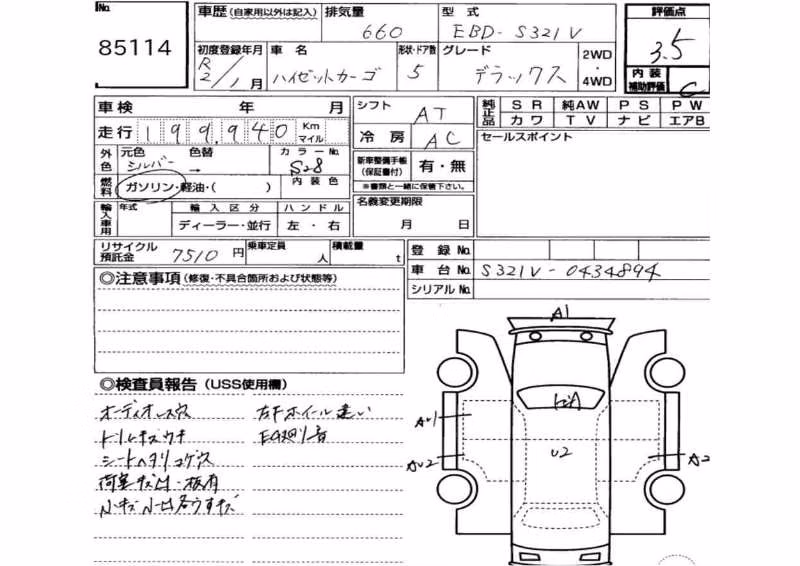 No.
85114
車歴(自家用以外は記入)
排気量
660
型式
EBD- S321V
評価点
3.5
初度登録年月
R2年1月
車名
ハイゼットカーゴ
形状・ドア数
5
グレード
デラックス
2WD
・
4WD
内装
補助評価
C
車検 年 月
シフト
AT
純正品
SR 純AW PS PW
カワ TV ナビ エアB
走行 199,940 Km マイル
冷房
AC
セールスポイント
外色
元色 色替
シルバー →
カラーNo.
S28
新車整備手帳
(保証書付)
有・無
※書類と一緒に保管下さい。
燃料
ガソリン・軽油・( )
内装色
名義変更期限
月 日
輸入車用
年式
輸入区分
ハンドル
ディーラー・並行
左・右
リサイクル
預託金
7510円
乗車定員
人
積載量
t
登録No.
車台No.
S321V-0434894
シリアルNo.
◎注意事項(修復・不具合箇所および状態等)
◎検査員報告(USS使用欄)
オーディオレス穴
右Fホイール違い
トリムキズウキ
EG廻り音
シートヘタリコゲ穴
荷室キズ凹・板有
小キズ小凹各ウすキズ
A1
AU1
U2
AU2
A2